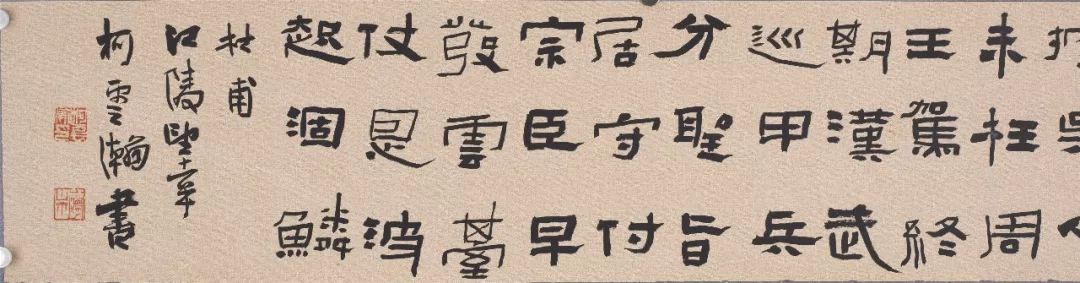 未枉周
王駕終
期漢武
巡甲兵
分聖旨
居守付
宗臣早
發雲臺
仗恩波
起涸鱗
杜甫
江陵望幸
柯雲瀚書